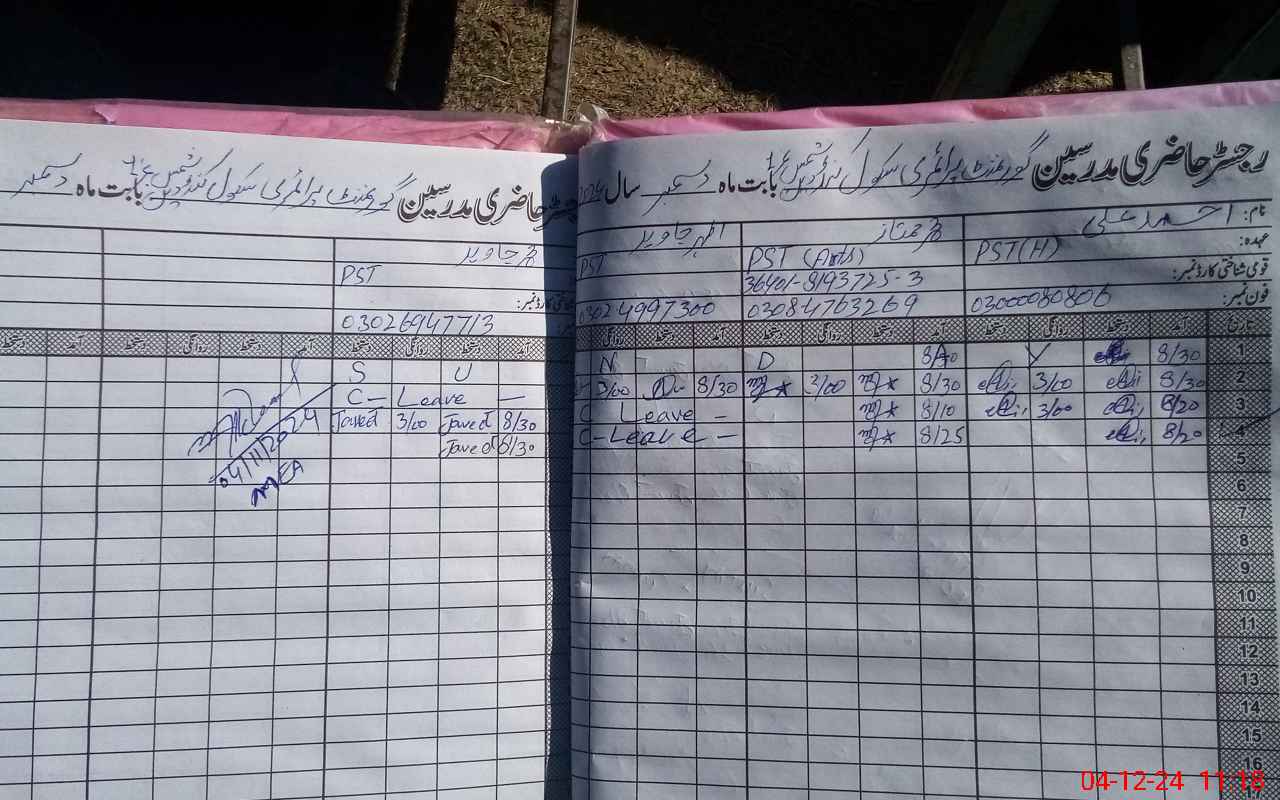 رجسٹر حاضری مدرسین گورنمنٹ پرائمری سکول بابت ماہ دسمبر سال 2024
نام: احمد علی محمد ممتاز اظہر جاوید
عہدہ: PST(H) PST (Arts) PST
قومی شناختی کارڈ نمبر: 36401-8193725-3
فون نمبر: 03000080806 03084763269 03024997300
تاریخ آمد دستخط روانگی دستخط آمد دستخط روانگی دستخط آمد دستخط روانگی
1 8/30 Y D N
2 8/30 3/00 8/30 3/00 8/30 3/00
3 8/20 3/00 8/10 C Leave -
4 8/20 8/25 C-Leave -
5
6
7
8
9
10
11
12
13
14
15
16
17
رجسٹر حاضری مدرسین گورنمنٹ پرائمری سکول بابت ماہ دسمبر
محمد جاوید
PST
شناختی کارڈ نمبر:
03026947713
آمد دستخط روانگی دستخط آمد دستخط روانگی دستخط آمد دستخط
S U
C- Leave -
Javed 3/00 Javed 8/30
Javed 8/30
04/11/2024
MEA
04-12-24 11:18